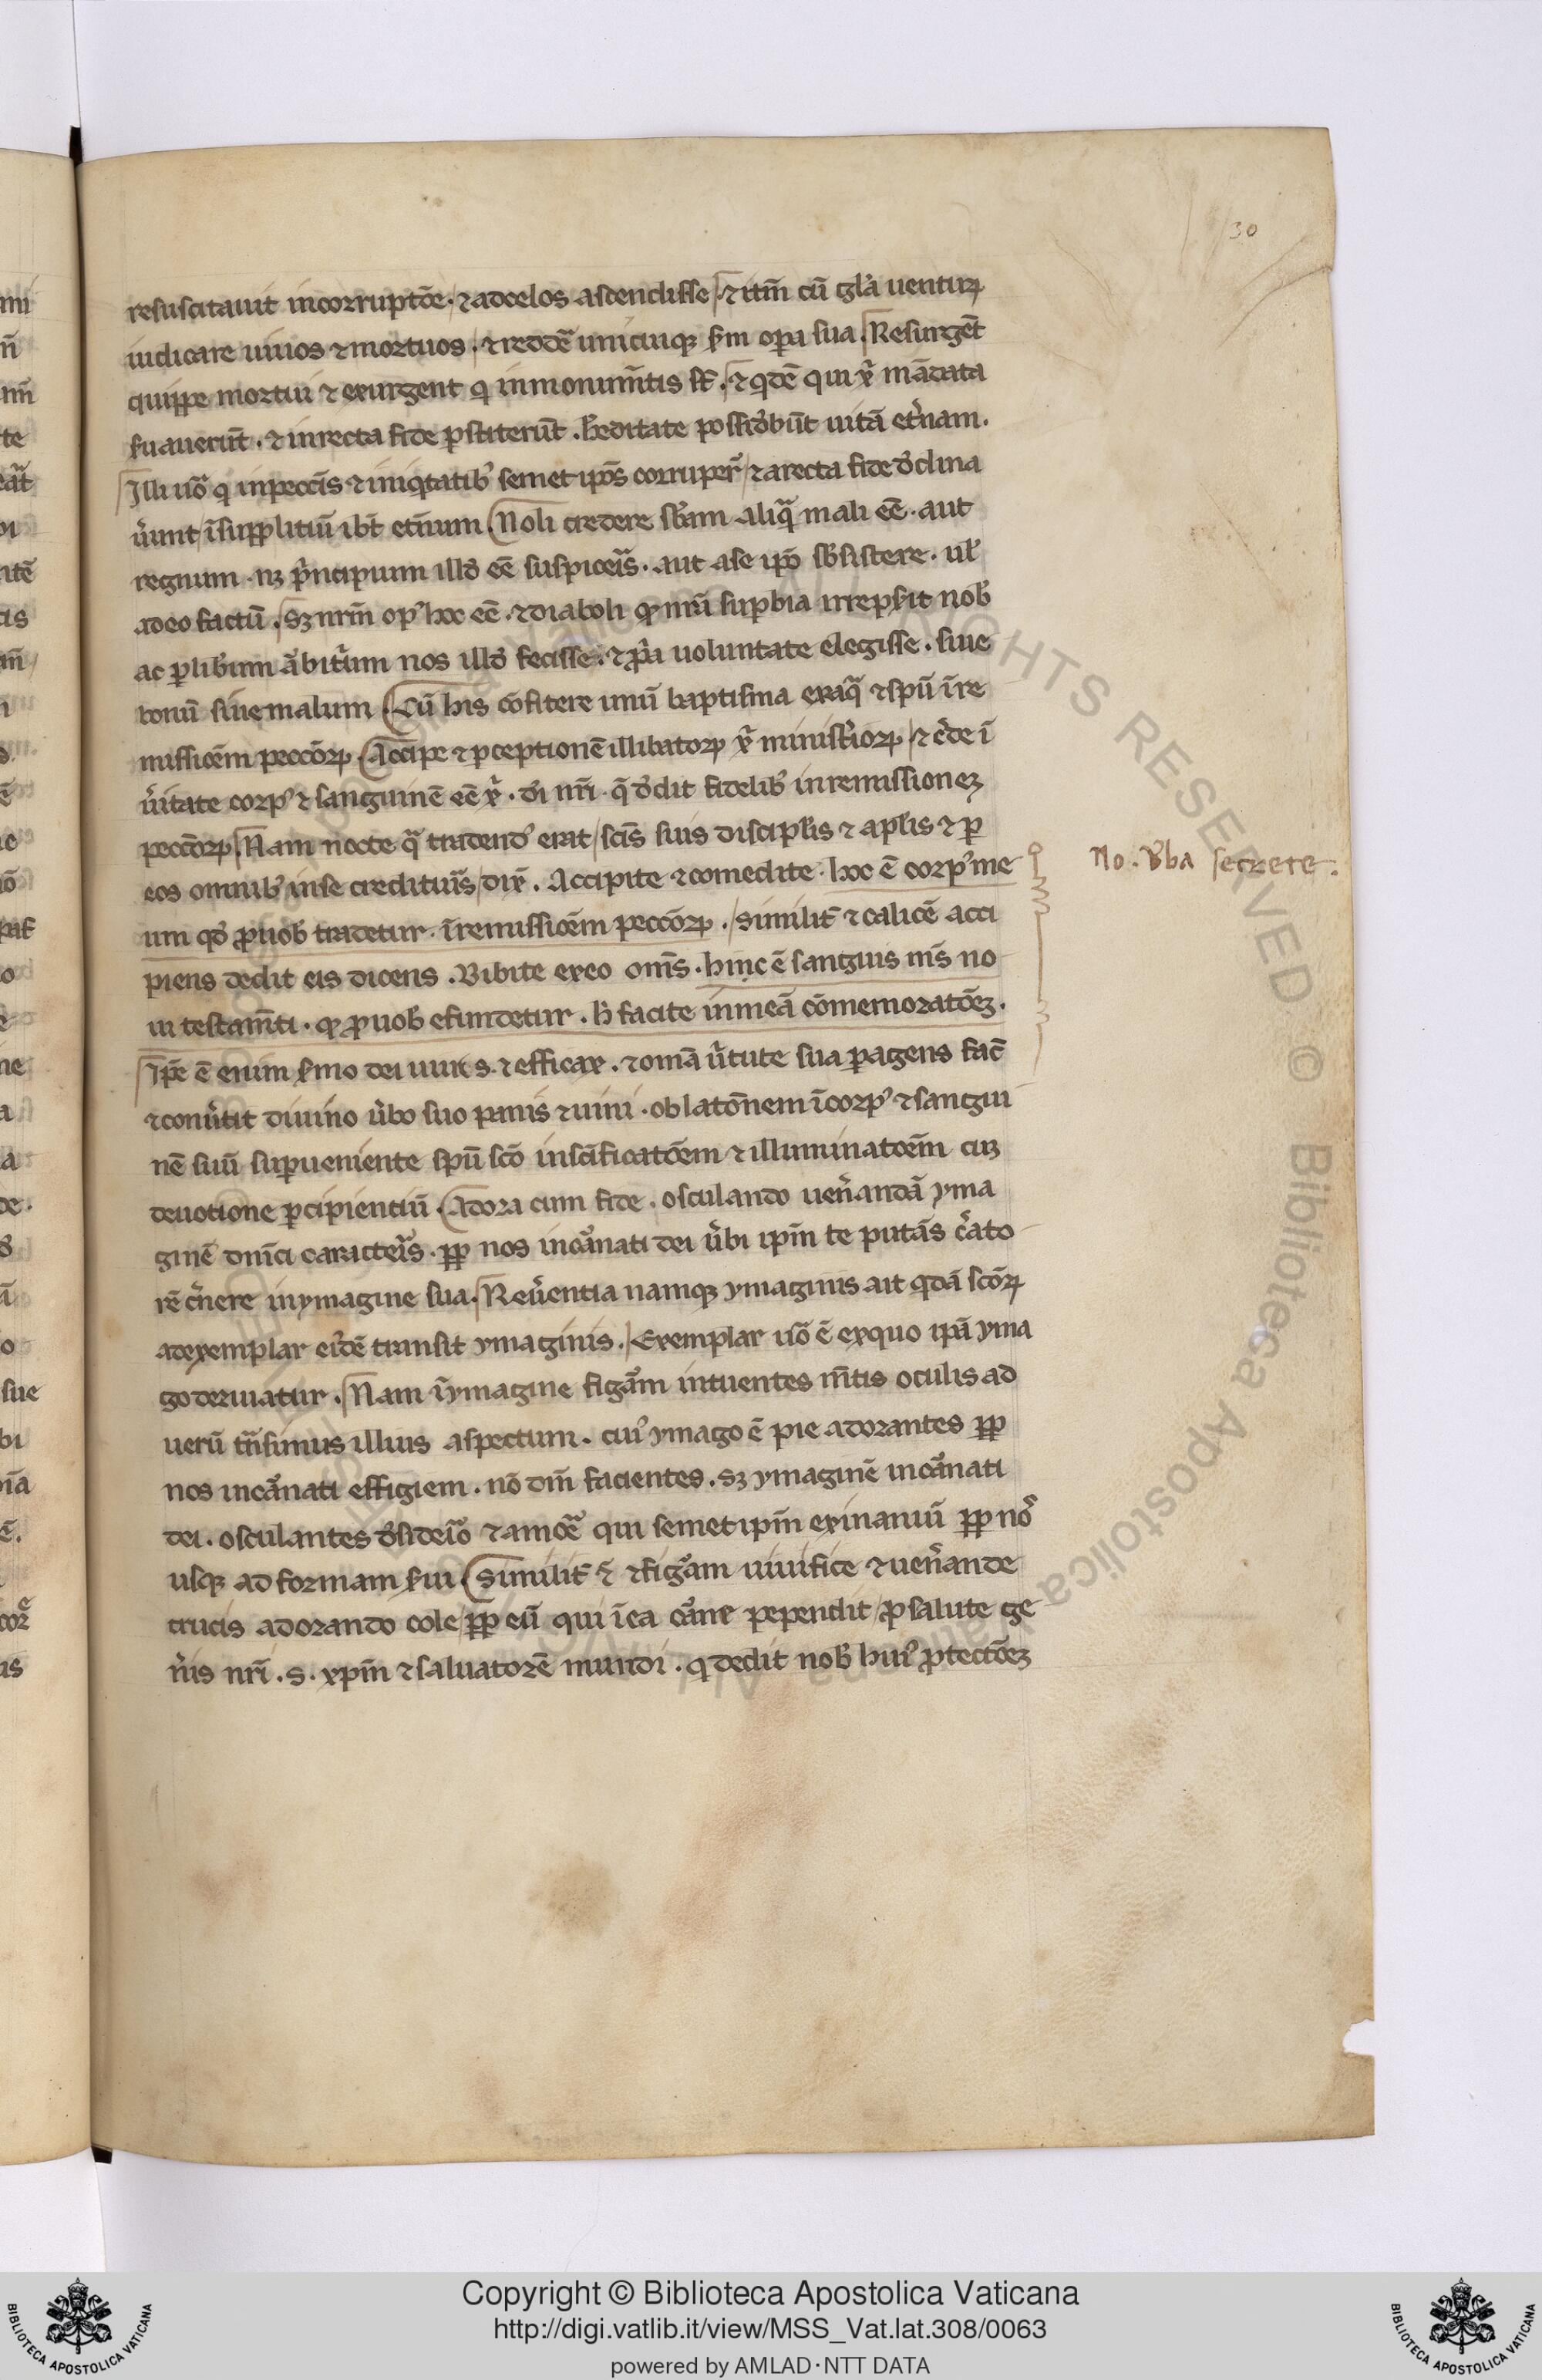 30
resuscitauit incorruptōe · ⁊ adcelos ascendisse · ⁊ itm̄ cū gl̄a uenturꝝ
iudicare uiuos ⁊ mortuos · ⁊ redde᷑ unicuiqꝫ scdm oꝑa sua . Resurgēt
quippe mortui ⁊ exurgent q̇ inmonum̄tis st̄ . ⁊ q̇dē qui xp̄i mādata
ẜuauerūt · ⁊ inrecta fide ꝑstiterūt . h̓editate possidebūt uitā et̓nam .
Illi uō q̇ inpecc̄is ⁊ iniq̇tatib᷒ semet ip̄os corruper̄ ⁊ arecta fide declina
u̓unt ī supplitiū ibt̄ et̓num Noli credere sb̄am aliq̄ mali eē · aut
regnum · nꝫ p̓ncipium illd̓ eē suspiceris · aut ase ip̄o sb̓sistere · ul̓
adeo factū . Sꝫ nr̄m op᷒ hoc eē · ⁊ diaboli q̇ nr̄a suꝑbia irrepsit nob̓
ac ꝑ lib̓um arbit̓um nos illd̓ fecisse · ⁊ ꝓp̓a uoluntate elegisse . siue
bonū siue malum Cū his cōfitere unū baptisma exaq̄ ⁊ spū ī re
missiōem peccōrꝝ Accipe ⁊ ꝑceptionē illibatorꝝ xp̄i minist̓iorꝝ ⁊ c̓de ī
u̓itate corp᷒ ⁊ sanguinē eē xp̄i · di nr̄i · q̄ dedit fidelib᷒ inremissioneꝫ
peccōrꝝ . Nam nocte q̄ tradend᷒ erat scīs suis discipl̓is ⁊ apl̓is ⁊ ꝑ
eos omnib᷒ inse crediturīs dix̄ . Accipite ⁊ comedite · hoc ē corp᷒ me
um qd̓ ꝓ uob̓ tradetur · ī remissiōem peccōrꝝ . similit̓ ⁊ calicē acci
piens dedit eis dicens . Bibite exeo om̄s · hic ē sanguis m̄s no
ui testam̄ti · q̇ ꝓ uob̓ efundetur . h̓ facite inmeā cōmemoratōeꝫ .
Ip̄e ē enim ẜmo dei uiuus ⁊ efficax . ⁊ omā u̓tute sua ꝑagens fac̄
⁊ conu̓tit diuino u̓bo suo panis ⁊ uini · oblatōnem ī corp᷒ ⁊ sangui
nē suū suꝑueniente spū scō insc̄ificatōem ⁊ illuminatōem cuꝫ
deuotione ꝑcipientiū . Adora cum fide . osculando uen̓andā yma
ginē dn̄ici caracteris · ꝓpt̓ nos incarnati dei u̓bi ip̄m te putās c̓ato
rē c̓nere inymagine sua . Reu̓entia namqꝫ ymaginis ait q̇dā scōrꝝ
adexemplar eidē transit ymaginis . Exemplar uō ē exquo ip̄a yma
go deriuatur . Nam īymagine figuram intuentes m̄tis oculis ad
uerū transimus illius aspectum . cui᷒ ymago ē pie adorantes ꝓpt̓
nos incarnati effigiem . nō dm̄ facientes . sꝫ ymaginē incarnati
dei . osculantes desideīo ⁊ amoē qui semetip̄m exinaniū ꝓpt̓ nos
usqꝫ ad formam ẜui Similit̓ ⁊ figuram uiuifice ⁊ uen̓ande
crucis adorando cole ꝓpt̓ eū qui ī ea carne pependit ꝓ salute ge
n̓is nr̄i . s . xp̄m ⁊ saluatorē mundi . q̇ dedit nob̓ hui᷒ ꝓtectōeꝫ
No . v̓ba secrete .
Copyright © Biblioteca Apostolica Vaticana
http://digi.vatlib.it/view/MSS_Vat.lat.308/0063
powered by AMLAD·NTT DATA
BIBLIOTECA APOSTOLICA VATICANA
BIBLIOTECA APOSTOLICA VATICANA